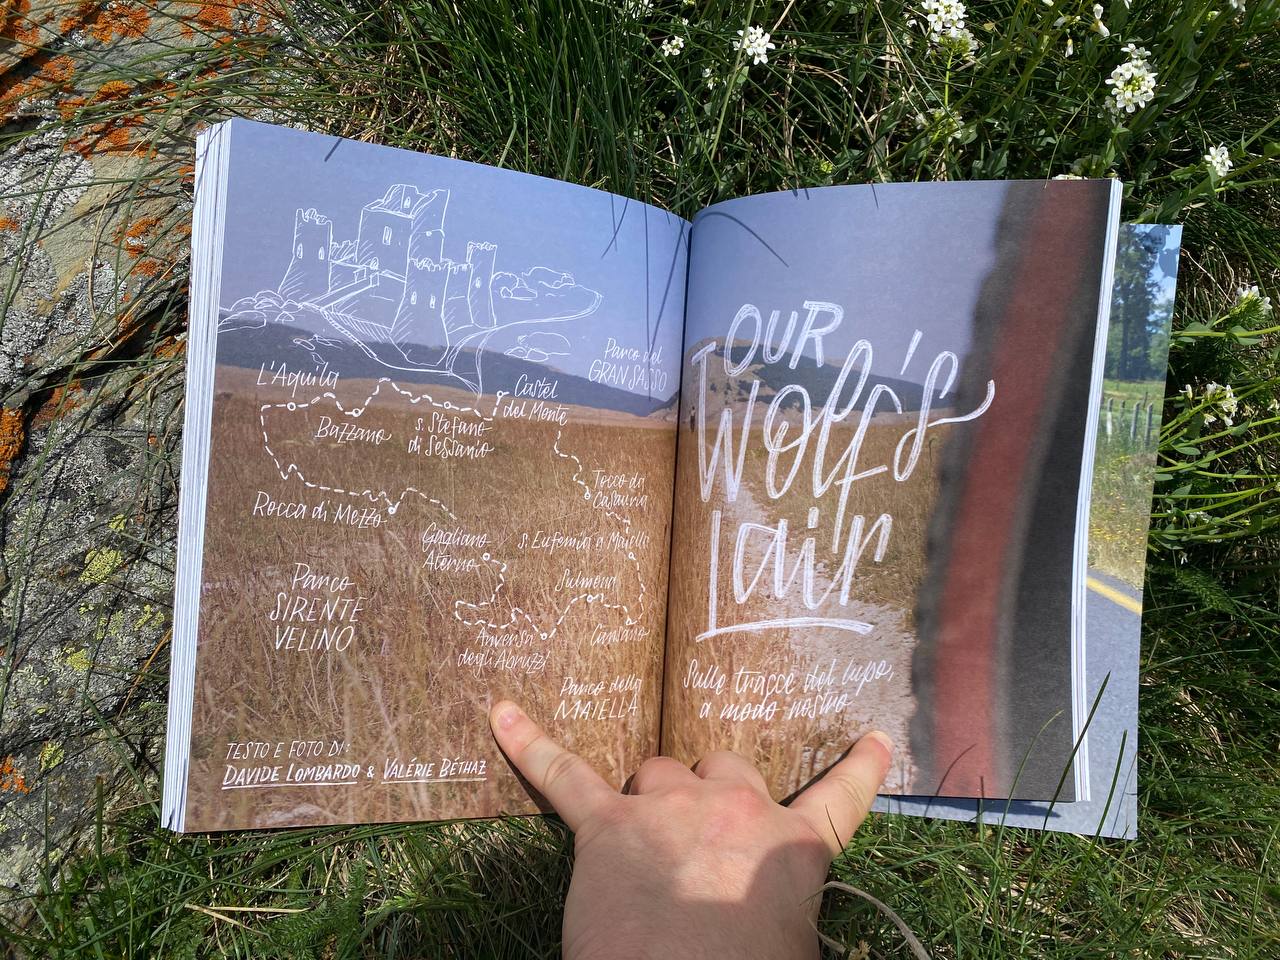 Parco del
GRAN SASSO
L'Aquila
Bazzano
S. Stefano
di Sessanio
Castel
del Monte
Tocco da
Casauria
Rocca di Mezzo
Gagliano
Aterno
S. Eufemia a Maiella
Sulmona
Cansano
Anversa
degli Abruzzi
Parco
SIRENTE
VELINO
Parco della
MAIELLA
TESTO E FOTO DI:
DAVIDE LOMBARDO & VALÉRIE BÉTHAZ
OUR
Wolf's
Lair
Sulle tracce del lupo,
a modo nostro